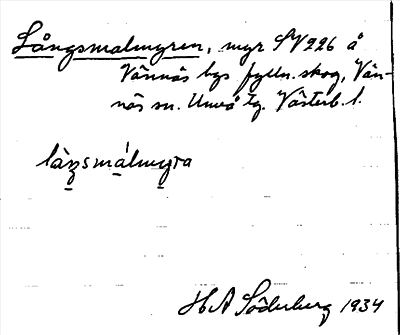 Långsmalmyren, myr SV 226 å
Vännäs bys fylln. skog, Vän-
näs sn. Umeå tg. Västerb. l.
làŋsmálmyra
H A Söderberg 1934